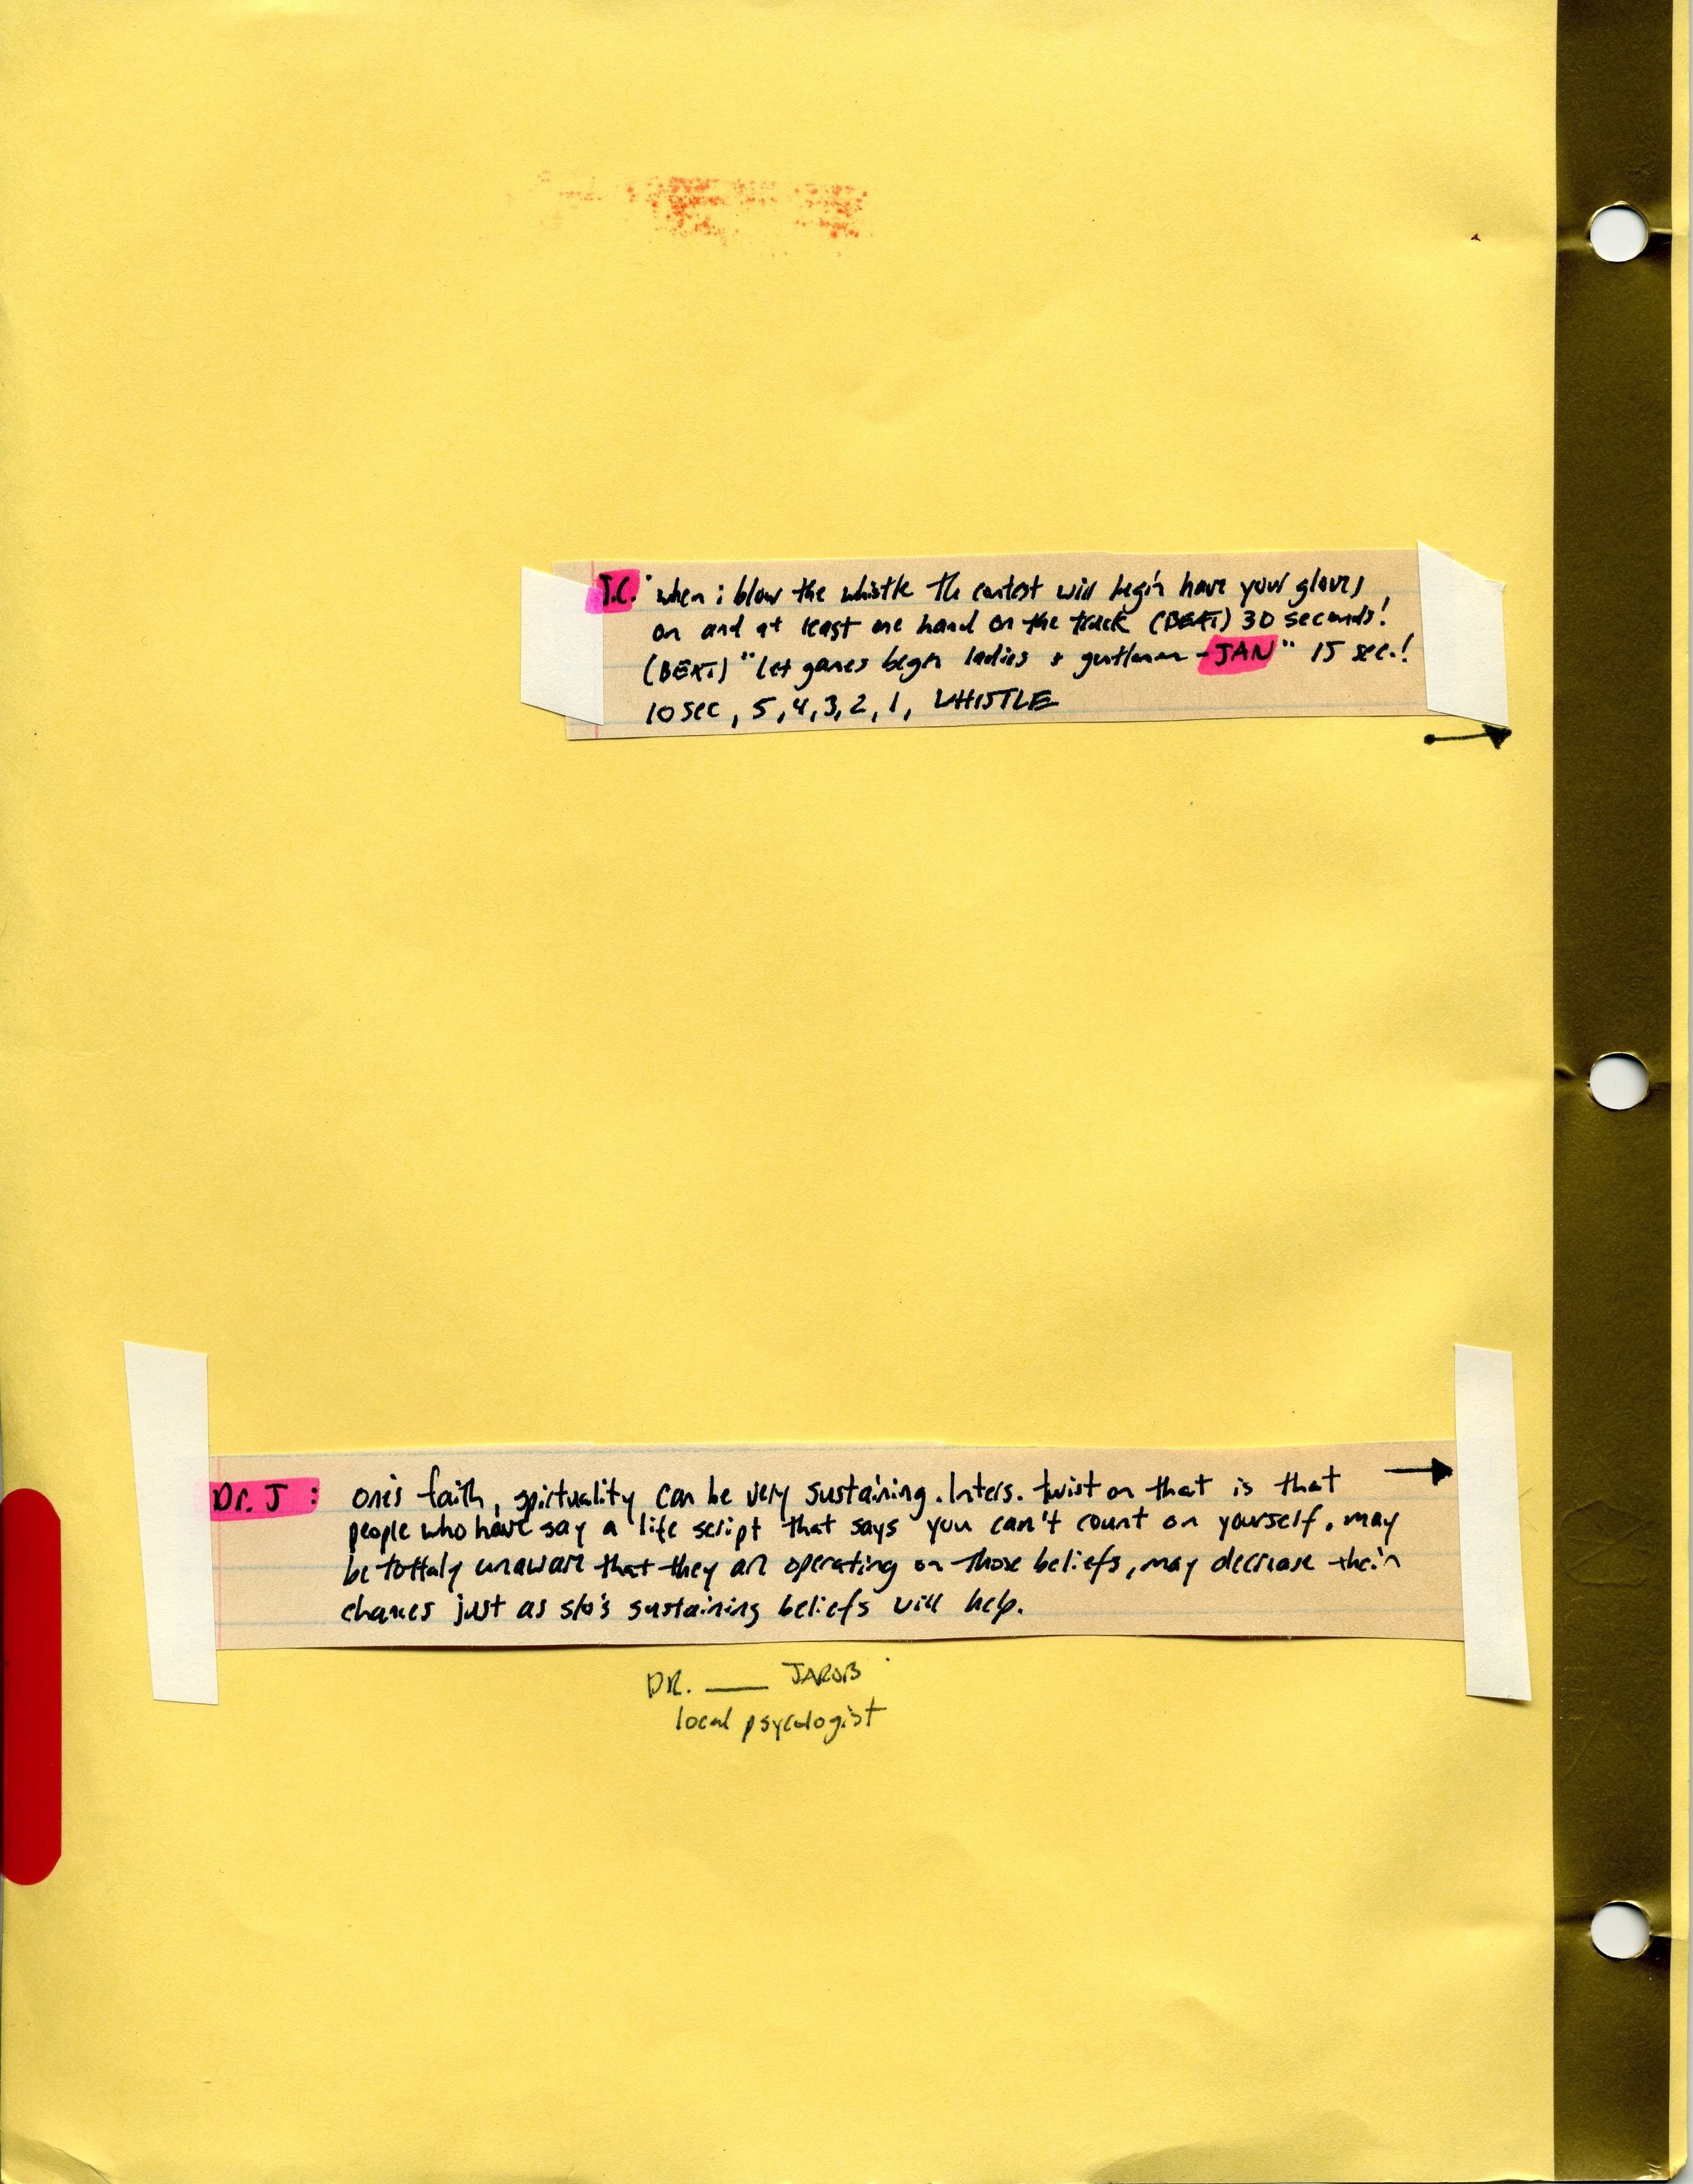 J.C. "when i blow the whistle the contest will begin have your gloves
on and at least one hand on the truck (BEAT) 30 seconds!
(BEAT) "let games begin ladies + gentlemen - JAN" 15 sec.!
10 sec, 5, 4, 3, 2, 1, WHISTLE
Dr. J : one's faith, spirtuality can be very sustaining. Inters. twist on that is that
people who have say a life script that says you can't count on yourself. may
be tottaly unaware that they are operating on those beliefs, may decrease their
chances just as s/o's sustaining beliefs will help.
DR. ___ JAROB
local psycologist